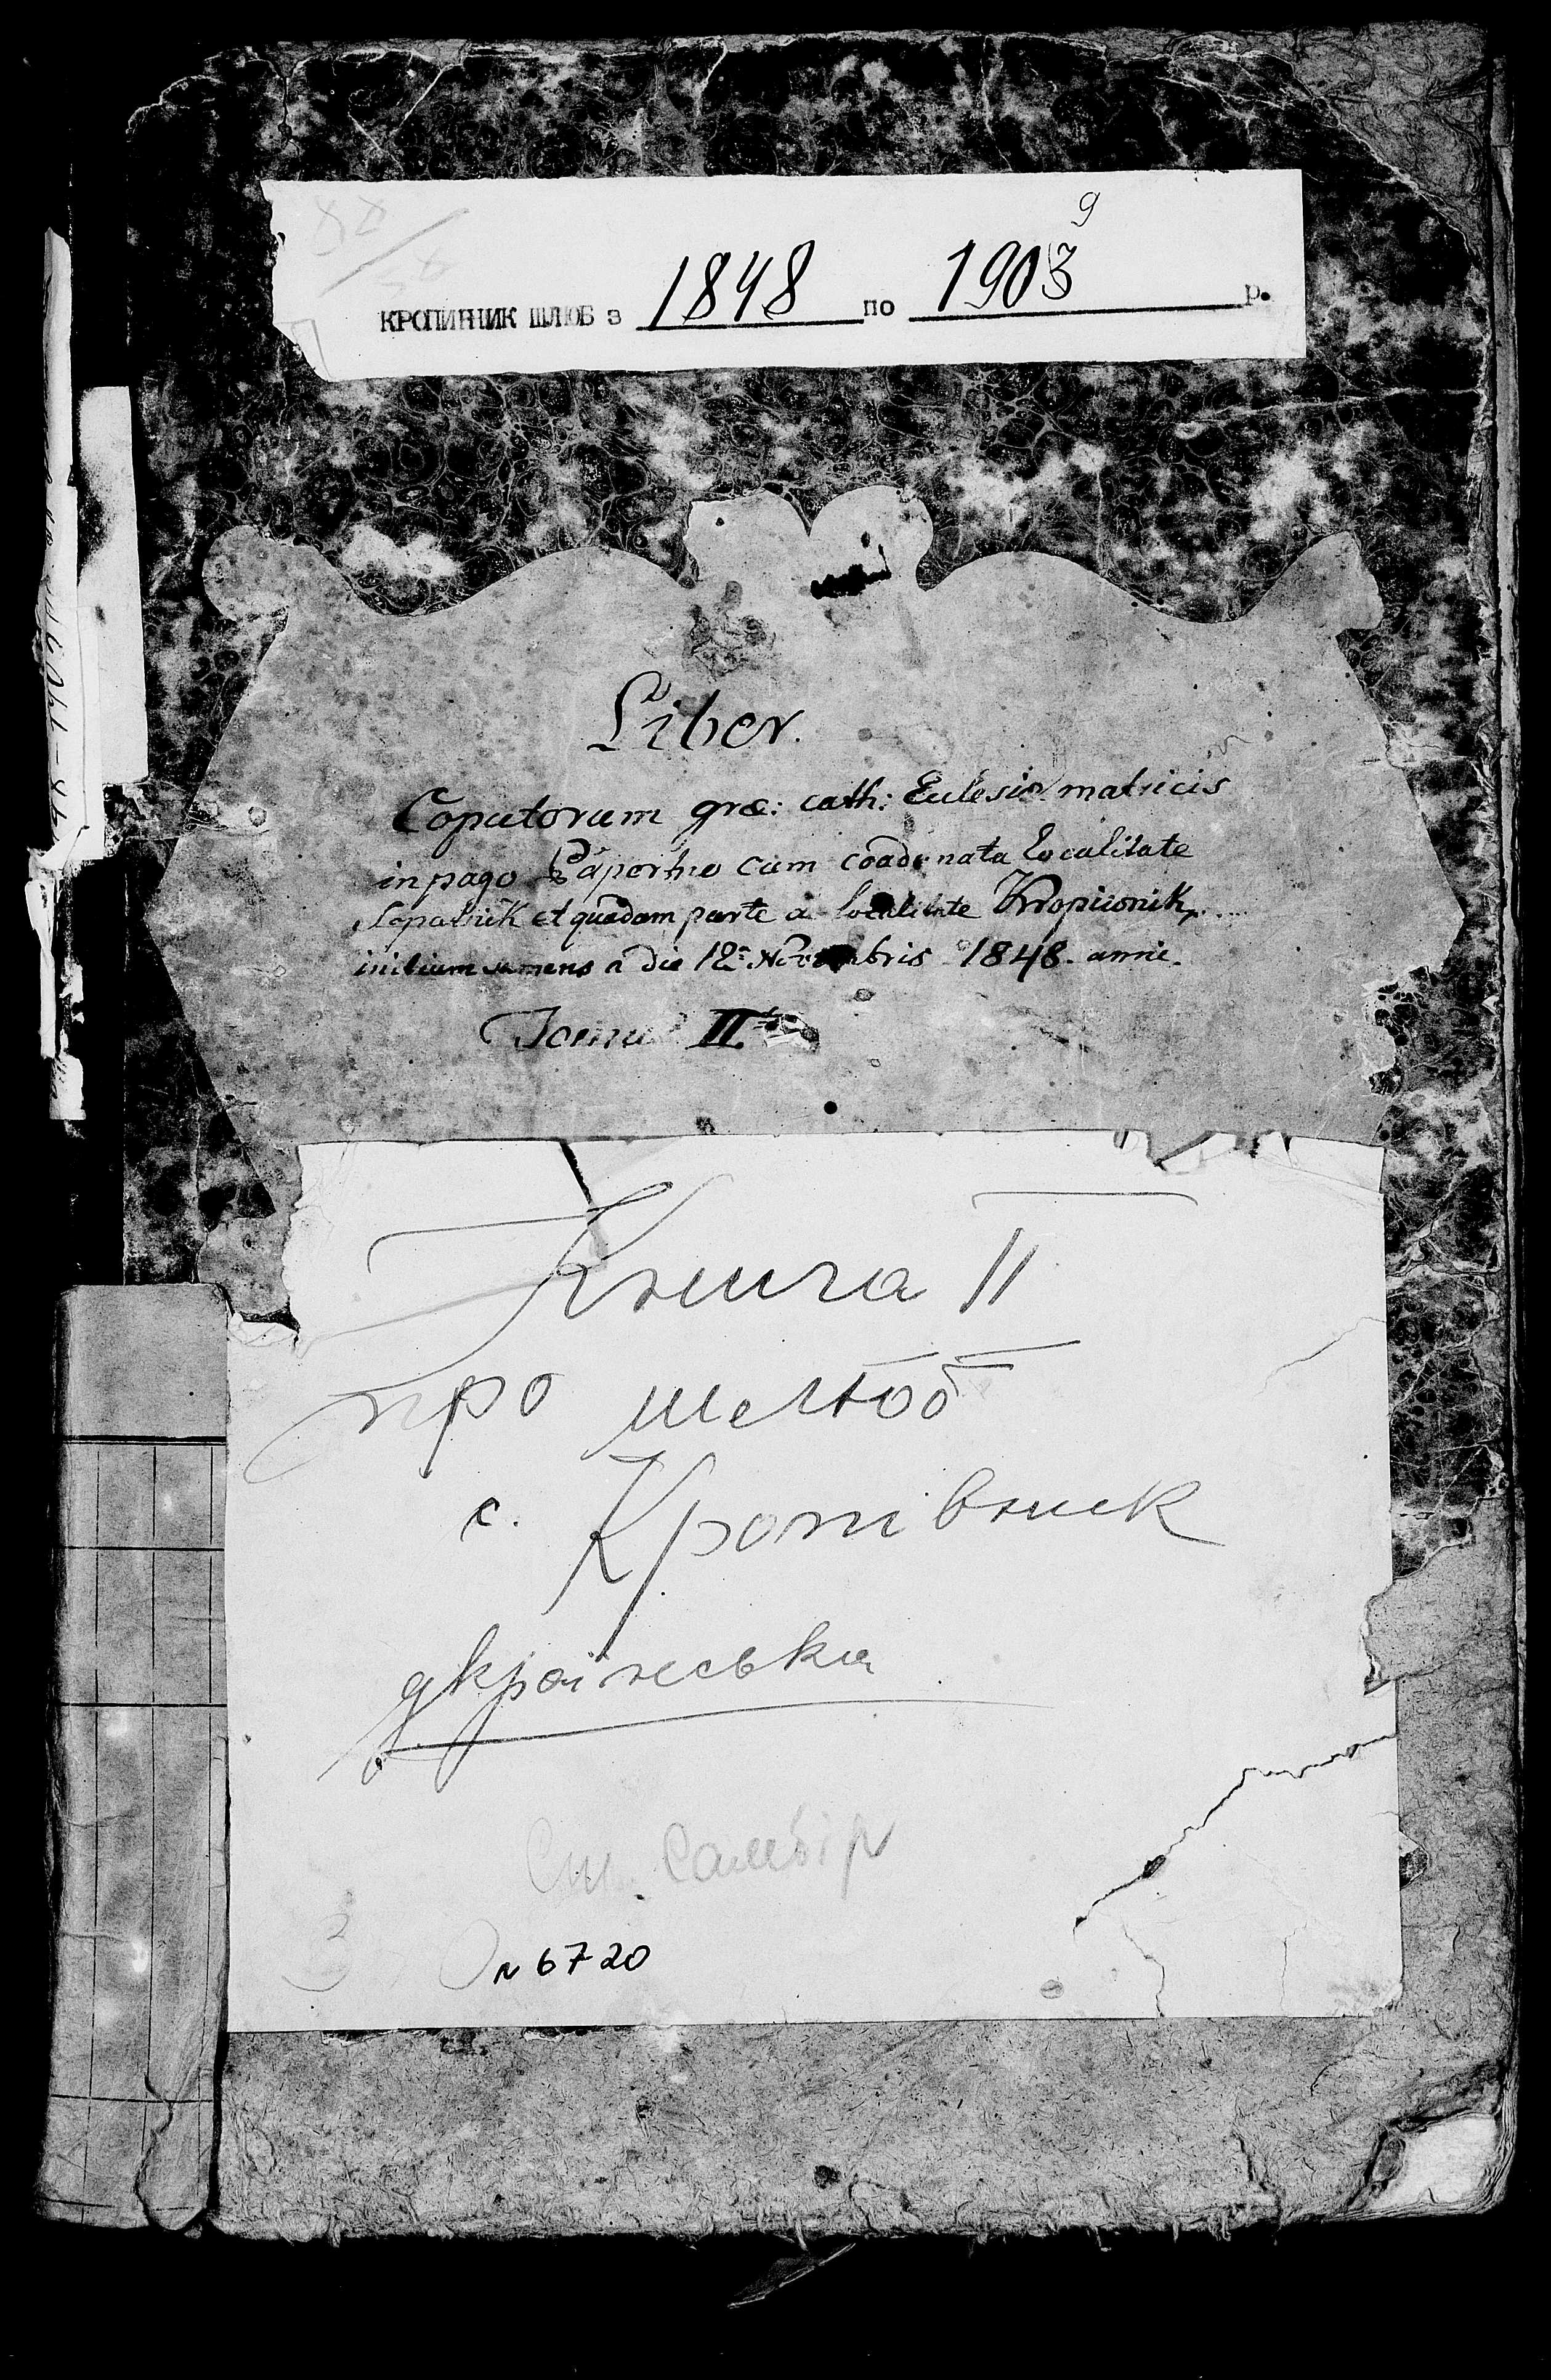 9
КРОПИВНИК ШЛЮБ з 1848 по 1903 р.
Liber.
Copulatorum græ: cath: Eclesiæ matricis
in pago Paportno cum coadunata localitate
Lopusnik et quadam parte a localitate Kropiwnik
initium sumens a die 12. Novembris 1848. anni.
Tomus II
Книга II
про шлюб
с. Кропівник
українська
Ст. Самбір
N 6720